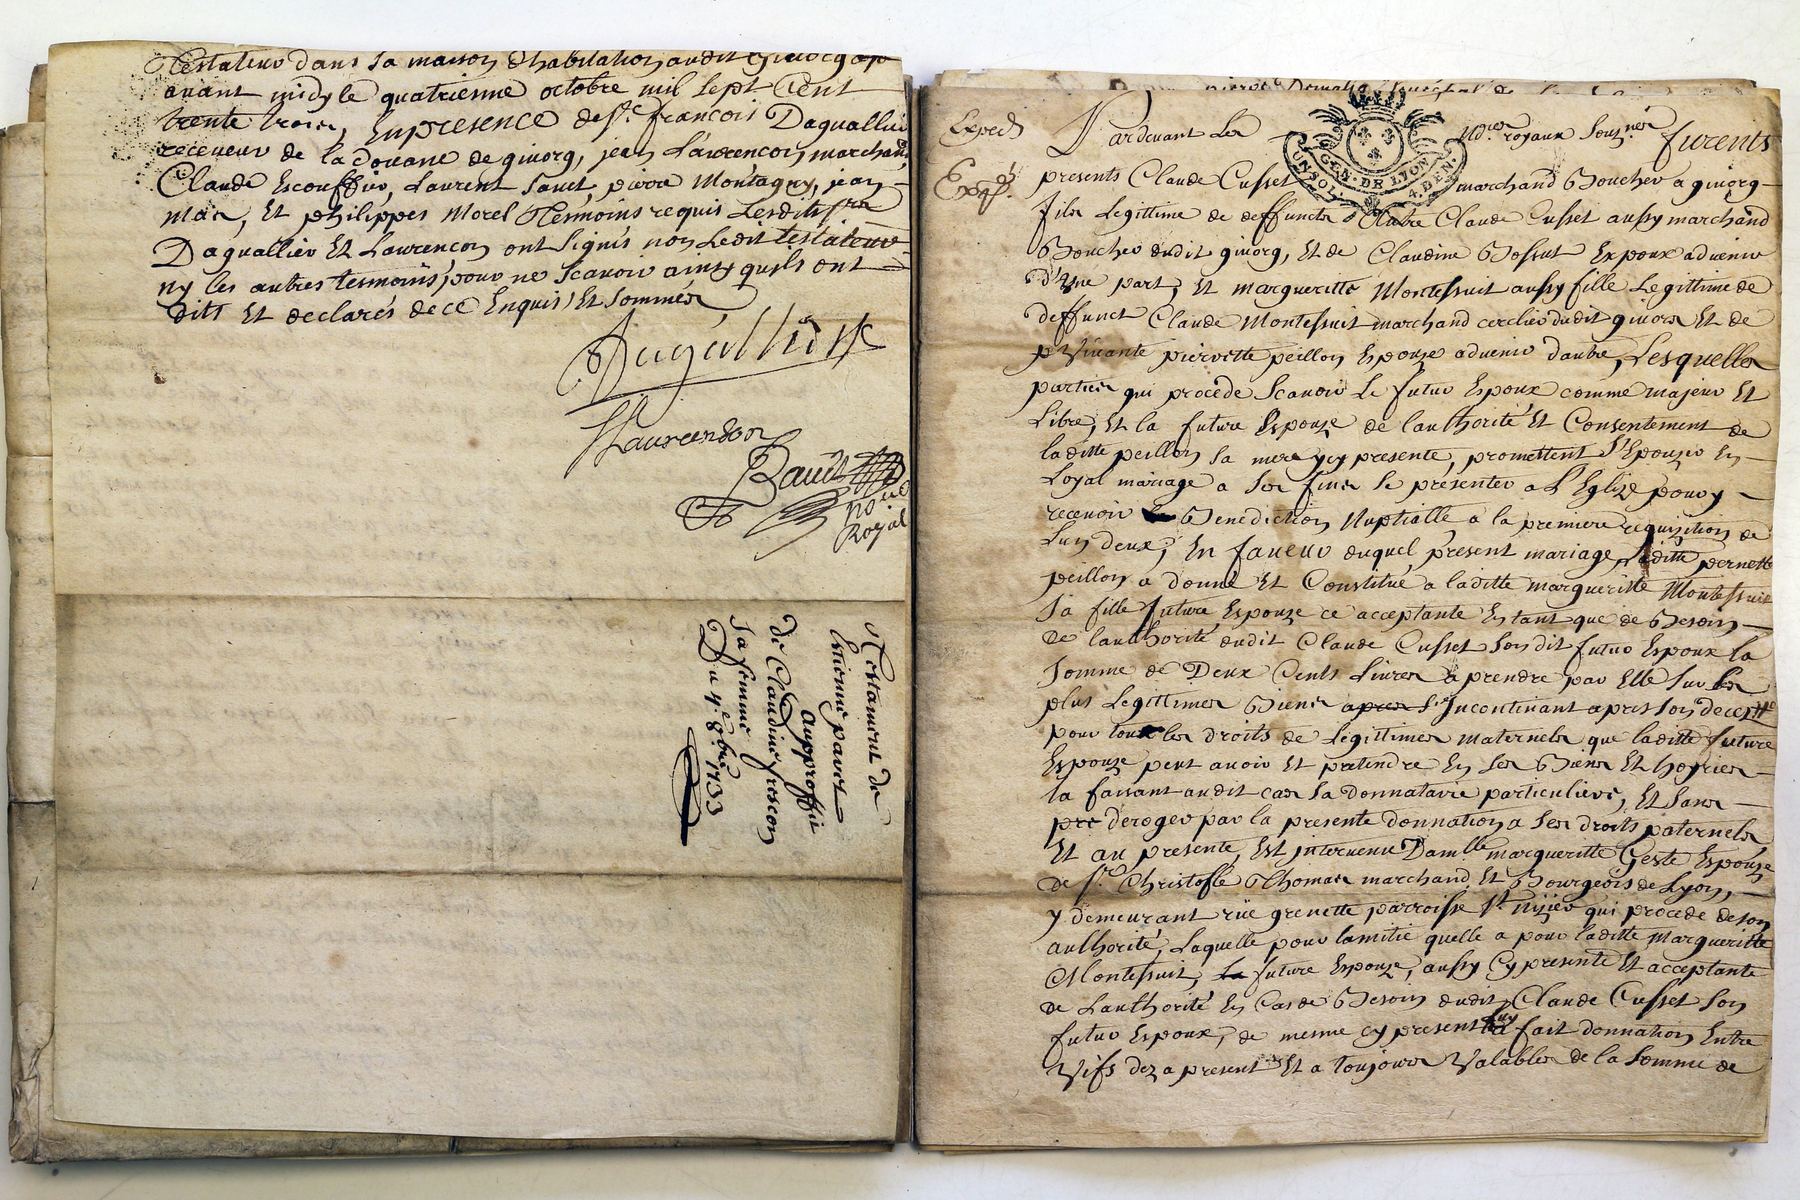 Testateur dans sa maison dhabitation audit givorg
avant midy le quatrieme octobre mil sept Cent
trente trois, En presence de sr. françois Daguallier
receveur de la doüane de givorg, jean Laurencon marchand
Claude Escoffier, Laurent Janet, pierre Montagny, jean
Mas, Et philippes Morel Tesmoins requis Lesdits srs
Daguallier Et Laurencon ont signés non Ledit testateur
ny les autres tesmoins, pour ne scavoir ainsy quils ont
dits Et declarés de ce Enquis, Et sommés
Dagallier
JLaurenson
Baudt
nore
Royal
Testament de
Estienne pavet
auproffit
de Claudine frescon
sa femme
Du 4e. 8bre. 1733
Exped
Exped.
Pardevant Les nores royaux souznés furents
GEN. DE LYON
UN SOL 4. DEN.
presents Claude Cusset marchand Boucher a givorg
fils Legittime de deffuncts autre Claude Cusset aussy marchand
Boucher dudit givorg, Et de Claudine Bossut Expoux advenir
d'Une part, Et margueritte Montessuit aussy fille Legittime de
deffunct Claude Montessuit marchand cerclier dudit givors Et de
Vivante pierrette peillon Espouze advenir dautre, Lesquelles
parties qui procède scavoir Le futur Espoux comme majeur Et
Libre, Et la future Espouze de lauthorité Et Consentement de
laditte peillon sa mere ycy presente, promettent s'Epouzer En
Loyal mariage a ses fins se presenter a L'Eglize pour y
recevoir la Benediction Nuptialle a la premiere requizition de
Lun deux; En faveur duquel present mariage laditte pernette
peillon a donné Et Constitué a laditte margueritte Montessuit
sa fille future Espouze ce acceptante En tant que de Besoin
de lauthorité dudit Claude Cusset son dit futur Espoux la
somme de Deux Cents Livres a prendre par Elle sur les
plus Legittimes Biens apres Incontinant apres son decept
pour tous les droits de Legittimes maternels que laditte future
Espouze peut avoir Et pretendre En ses Biens Et hoyries
la faisant audit cas sa donnataire particuliere, Et sans
pre deroger par la presente donnation a ses droits paternels
Et au presente, Est intervenue Damlle margueritte Geste Espouze
de sr. Christofle Thomas marchand Et Bourgeois de Lyon,
y demeurant rüe grenette parroisse st. nizier qui procede de son
authorité, Laquelle pour lamitié quelle a pour laditte Margueritte
Montessuit, la future Espouze, aussy Cy presente Et acceptante
de Lauthorité En Cas de Besoin dudit Claude Cusset son
futur Espoux, de mesme cy present luy a fait donnation Entre
Vifs dez a present Et a toujours Valables de la somme de